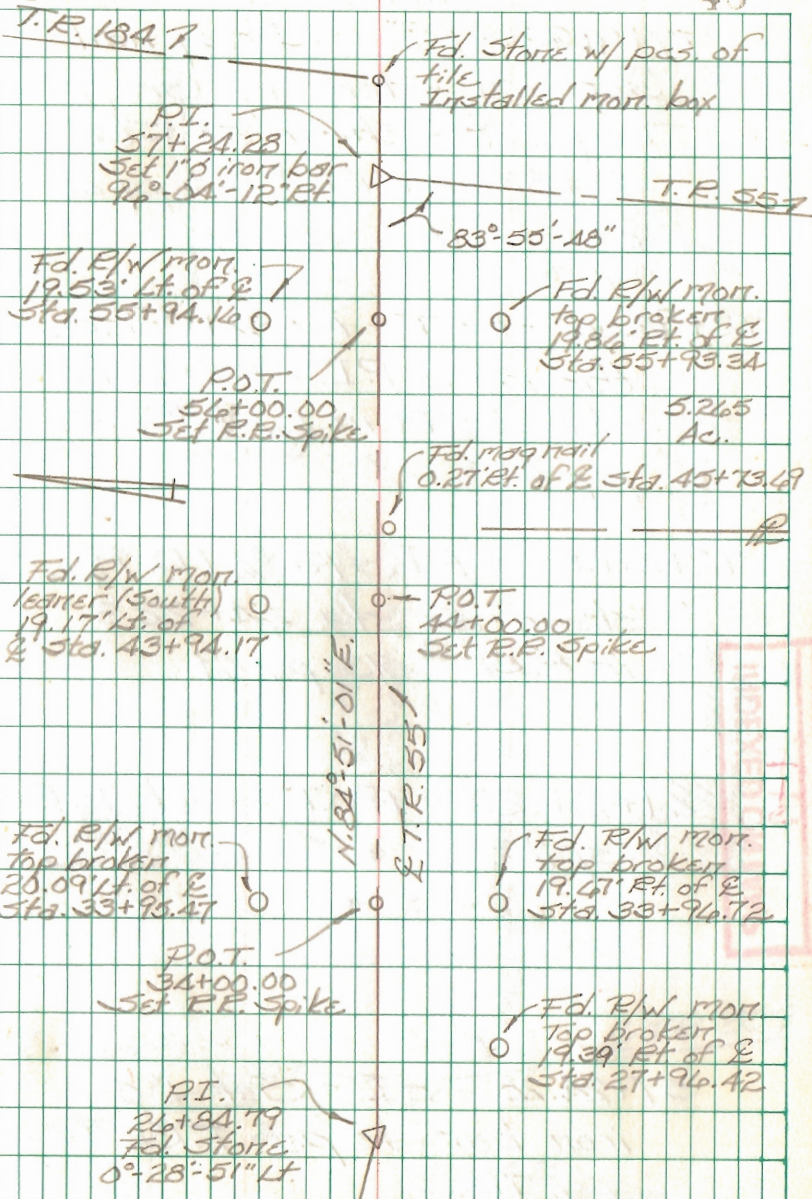 T.R. 184
Fd. Stone w/ pcs. of
tile
Installed mon. box
P.I.
57+24.28
Set 1"ø iron bar
96°-04'-12" Rt.
T.R. 551
83°-55'-48"
Fd. R/W mon.
19.53' Lt. of ℄
Sta. 55+94.16
Fd. R/W mon.
top broken
19.86' Rt. of ℄
Sta. 55+93.34
P.O.T.
56+00.00
Set R.R. Spike
5.265
Ac.
Fd. mag nail
0.27' Rt. of ℄ Sta. 45+73.69
℄
Fd. R/W mon.
leaner (South)
19.17' Lt. of
℄ Sta. 43+94.17
P.O.T.
44+00.00
Set R.R. Spike
N. 84°-51'-01" E.
℄ T.R. 551
Fd. R/W mon.
top broken
20.09' Lt. of ℄
Sta. 33+95.47
Fd. R/W mon.
top broken
19.67' Rt. of ℄
Sta. 33+96.72
P.O.T.
34+00.00
Set R.R. Spike
Fd. R/W mon.
Top broken
19.39' Rt of ℄
Sta. 27+96.42
P.I.
26+84.79
Fd. Stone
0°-28'-51" Lt.
INDEXED